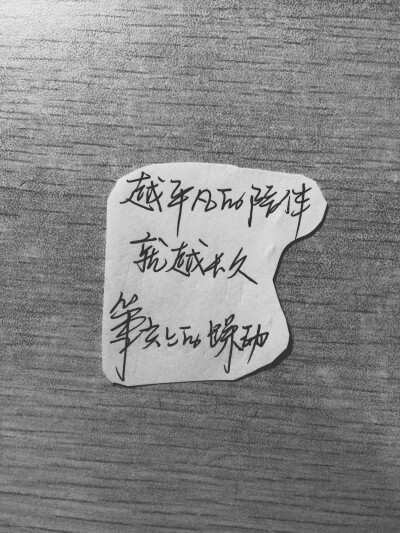 越平凡的陪伴
就越长久
的躁动